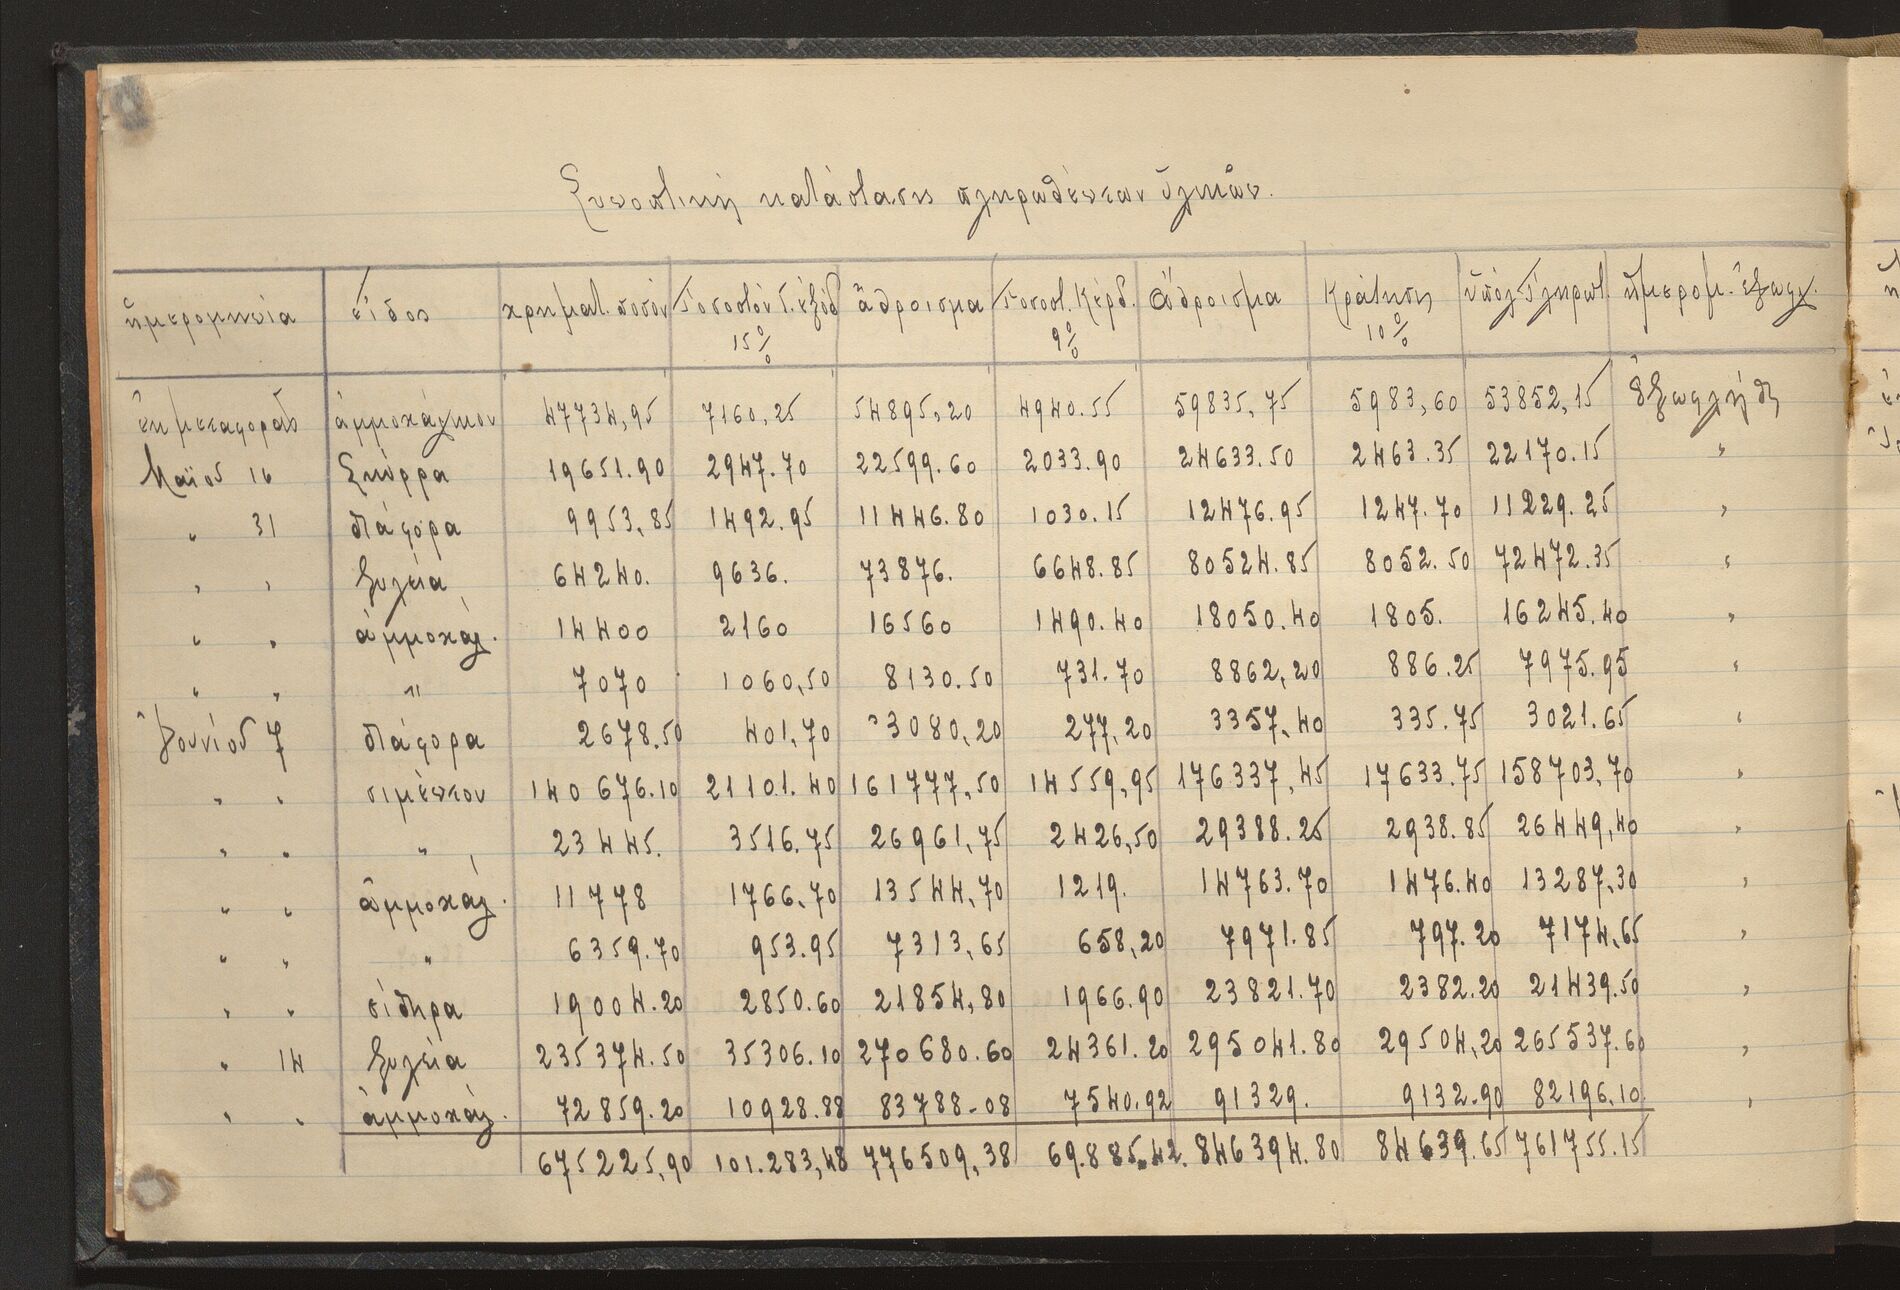 Συνοπτική κατάστασις πληρωθέντων ὑλικῶν.
ἡμερομηνία εἶδος χρηματ. ποσόν Ποσοστόν Γ. ἐξόδ 15% ἄθροισμα Ποσοστ. Κέρδ. 9% ἄθροισμα Κράτησις 10% ὑπόλ. Πληρωτ. ἡμερομ. ἐξωφλ.
ἐκ μεταφορᾶς ἀμμοχάλικον 47734,95 7160,25 54895,20 4940.55 59835,75 5983,60 53852,15 ἐξωφλήθη
Μαΐου 16 Σκύρρα 19651.90 2947.70 22599.60 2033.90 24633.50 2463.35 22170.15 "
" 31 διάφορα 9953,85 1492.95 11446.80 1030.15 12476.95 1247.70 11229.25 "
" " ξυλεία 64240. 9636. 73876. 6648.85 80524.85 8052.50 72472.35 "
" " ἀμμοχάλ. 14400 2160 16560 1490.40 18050.40 1805. 16245.40 "
" " " 7070 1060,50 8130.50 731.70 8862,20 886.25 7975.95 "
Ἰουνίου 7 διάφορα 2678.50 401,70 3080,20 277,20 3357,40 335.75 3021.65 "
" " σιμέντον 140676.10 21101.40 161777,50 14559,95 176337,45 17633.75 158703,70 "
" " " 23445. 3516.75 26961,75 2426,50 29388.25 2938.85 26449,40 "
" " ἀμμοχάλ. 11778 1766,70 13544,70 1219. 14763.70 1476.40 13287,30 "
" " " 6359.70 953.95 7313,65 658,20 7971.85 797.20 7174,65 "
" " σίδηρα 19004.20 2850.60 21854,80 1966.90 23821.70 2382.20 21439.50 "
" 14 ξυλεία 235374.50 35306.10 270680.60 24361.20 295041.80 29504,20 265537.60 "
" " ἀμμοχάλ. 72859.20 10928.88 83788-08 7540.92 91329. 9132-90 82196.10 "
675225,90 101.283,48 776509,38 69.885.42. 846394.80 84639.65 761755.15